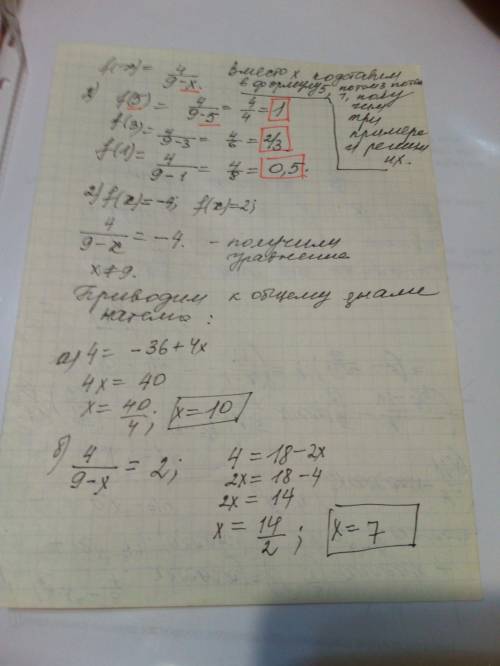 f(x) = 4/9-x.
Вместо x подставим
в формулу 5, потом 3 потом
1, полу
чим
три
примера
и решим
их.
f(5) = 4/9-5 = 4/4 = 1
f(3) = 4/9-3 = 4/6 = 2/3
f(1) = 4/9-1 = 4/8 = 0,5.
2) f(x) = -4; f(x) = 2;
4/9-x = -4. - получили
уравнение
x ≠ 9.
Приводим к общему знаме
нателю:
а) 4 = -36 + 4x
4x = 40
x = 40/4; x = 10
б) 4/9-x = 2;
4 = 18 - 2x
2x = 18 - 4
2x = 14
x = 14/2; x = 7